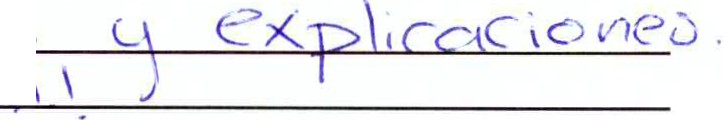 y explicaciones.
!!